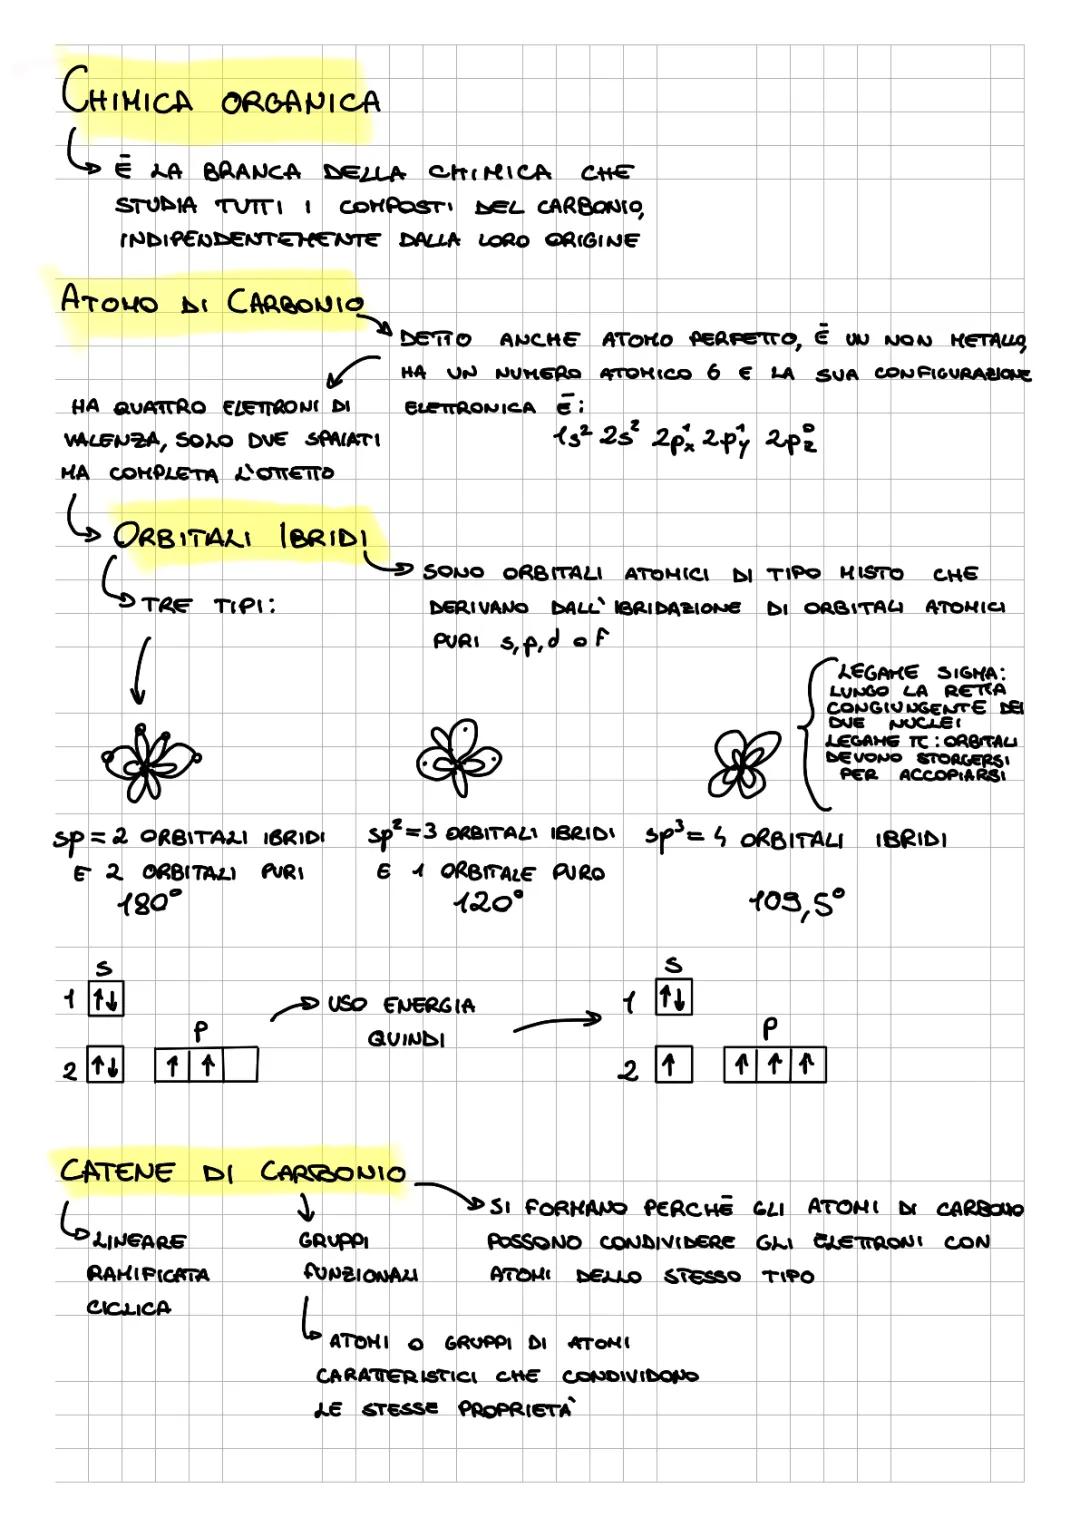 CHIMICA ORGANICA
È LA BRANCA DELLA CHIMICA CHE
STUDIA TUTTI I COMPOSTI DEL CARBONIO,
INDIPENDENTEMENTE DALLA LORO ORIGINE
ATOMO DI CARBONIO
DETTO ANCHE ATOMO PERFETTO, È UN NON METALLO,
HA UN NUMERO ATOMICO 6 E LA SUA CONFIGURAZIONE
ELETTRONICA È:
1s² 2s² 2p¹x 2p¹y 2p⁰z
HA QUATTRO ELETTRONI DI
VALENZA, SOLO DUE SPAIATI
MA COMPLETA L'OTTETTO
ORBITALI IBRIDI
SONO ORBITALI ATOMICI DI TIPO MISTO CHE
DERIVANO DALL'IBRIDAZIONE DI ORBITALI ATOMICI
PURI s, p, d o f
TRE TIPI:
LEGAME SIGMA:
LUNGO LA RETTA
CONGIUNGENTE DEI
DUE NUCLEI
LEGAME π: ORBITALI
DEVONO STORGERSI
PER ACCOPIARSI
sp = 2 ORBITALI IBRIDI
E 2 ORBITALI PURI
180°
sp² = 3 ORBITALI IBRIDI
E 1 ORBITALE PURO
120°
sp³ = 4 ORBITALI IBRIDI
109,5°
S
1 ↑↓
P
2 ↑↓ ↑ ↑
USO ENERGIA
QUINDI
S
1 ↑↓
P
2 ↑ ↑ ↑ ↑
CATENE DI CARBONIO
SI FORMANO PERCHÉ GLI ATOMI DI CARBONO
POSSONO CONDIVIDERE GLI ELETTRONI CON
ATOMI DELLO STESSO TIPO
LINEARE
RAMIFICATA
CICLICA
GRUPPI
FUNZIONALI
ATOMI O GRUPPI DI ATOMI
CARATTERISTICI CHE CONDIVIDONO
LE STESSE PROPRIETÀ